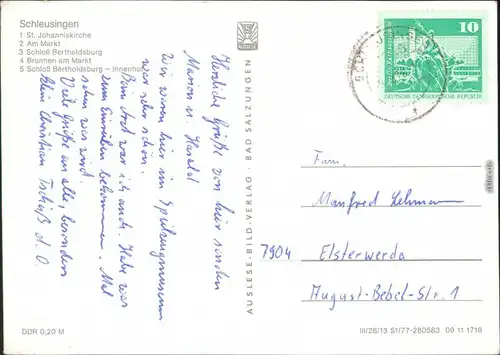 Schleusingen
1 St. Johanniskirche
2 Am Markt
3 Schloß Bertholdsburg
4 Brunnen am Markt
5 Schloß Bertholdsburg – Innenhof
AUSLESE
Herzliche Grüße von hier senden
Marion u. Harald
Wir waren hier im Spielzeugmuseum
war sehr schön.
Beim Arzt war ich auch. Habe was
zum Einreiben bekommen. Mal
sehen was wird
Viele Grüße an alle, besonders
Christian
AUSLESE-BILD-VERLAG · BAD SALZUNGEN
10
DEUTSCHE DEMOKRATISCHE REPUBLIK
Fam.
Manfred Lehmann
7904 Elsterwerda
August-Bebel-Str. 1
DDR 0,20 M
III/26/13 St/77-280583 09 11 1718